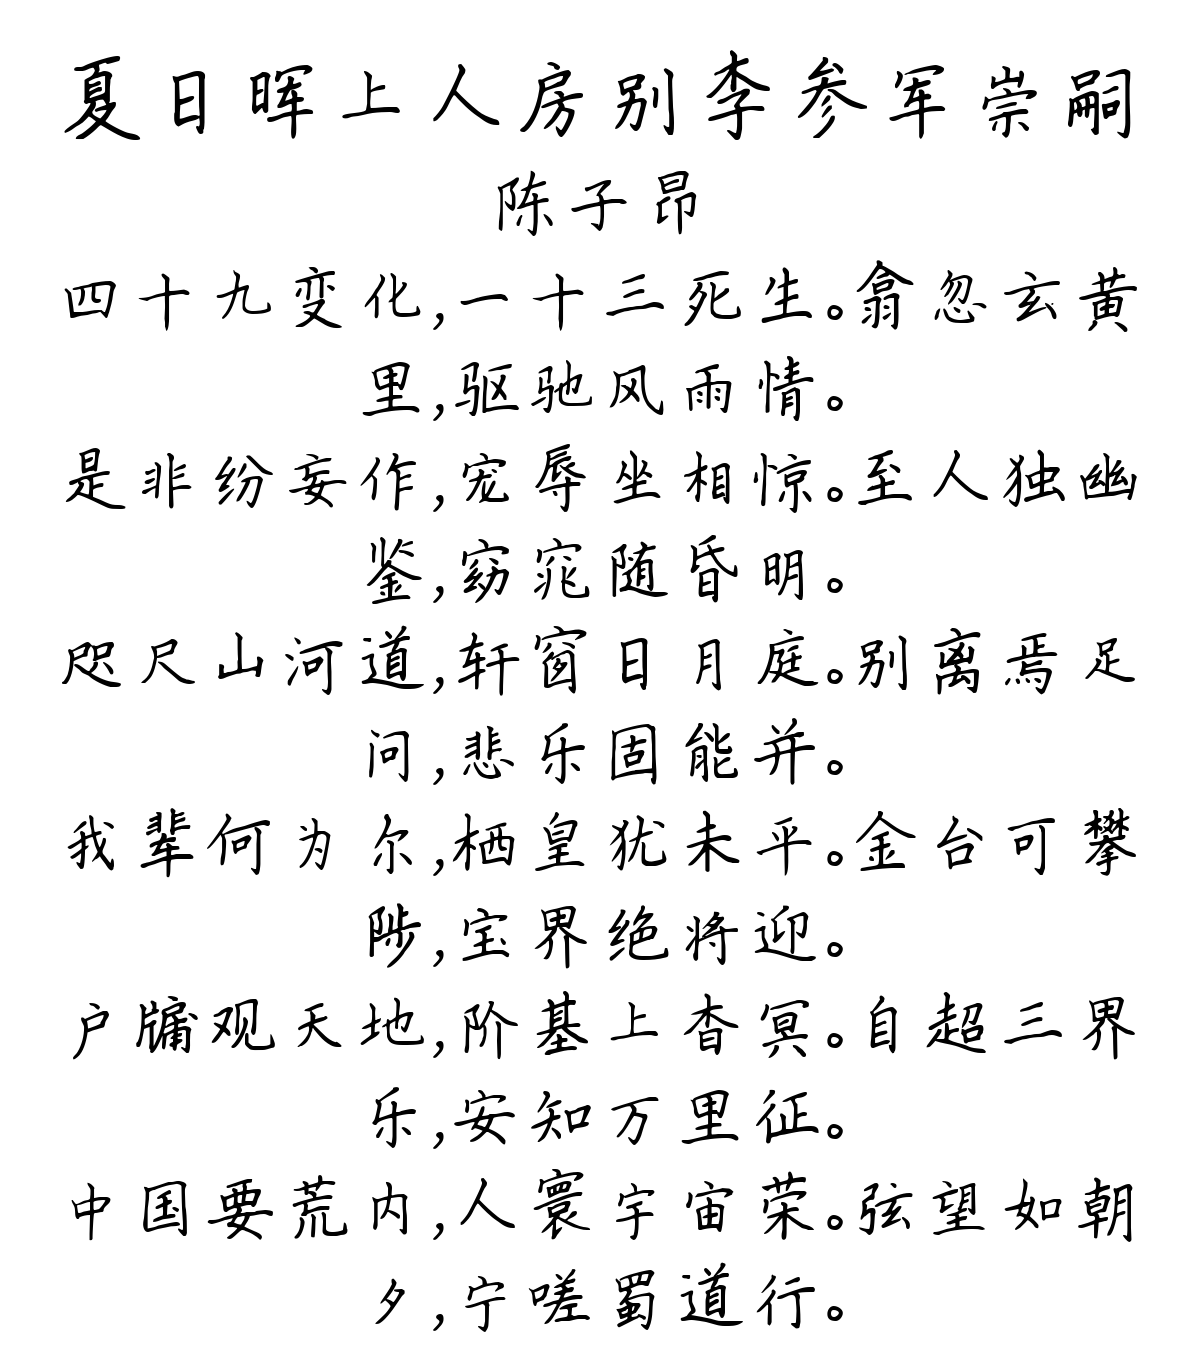 夏日晖上人房别李参军崇嗣
陈子昂
四十九变化,一十三死生。翕忽玄黄
里,驱驰风雨情。
是非纷妄作,宠辱坐相惊。至人独幽
鉴,窈窕随昏明。
咫尺山河道,轩窗日月庭。别离焉足
问,悲乐固能并。
我辈何为尔,栖皇犹未平。金台可攀
陟,宝界绝将迎。
户牖观天地,阶基上杳冥。自超三界
乐,安知万里征。
中国要荒内,人寰宇宙荣。弦望如朝
夕,宁嗟蜀道行。